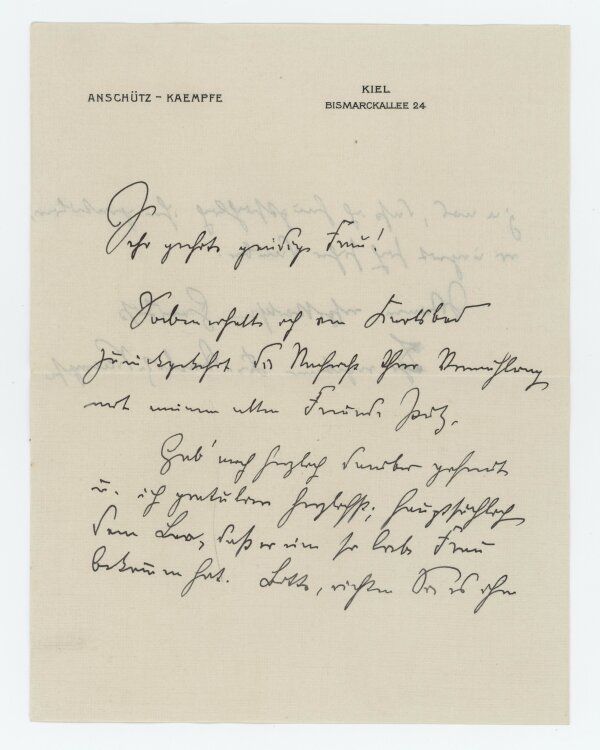 ANSCHÜTZ - KAEMPFE
KIEL
BISMARCKALLEE 24
Sehr geehrte gnädige Frau!
Soeben erhalte ich von Karlsbad
zurückgekehrt die Nachricht Ihrer Vermählung
mit meinem alten Freunde Putz.
Hab' mich herzlich darüber gefreut
u. ich gratuliere herzlichst; hauptsächlich
dem Leo, daß er eine so liebe Frau
bekommen hat. Bitte, richten Sie es ihm